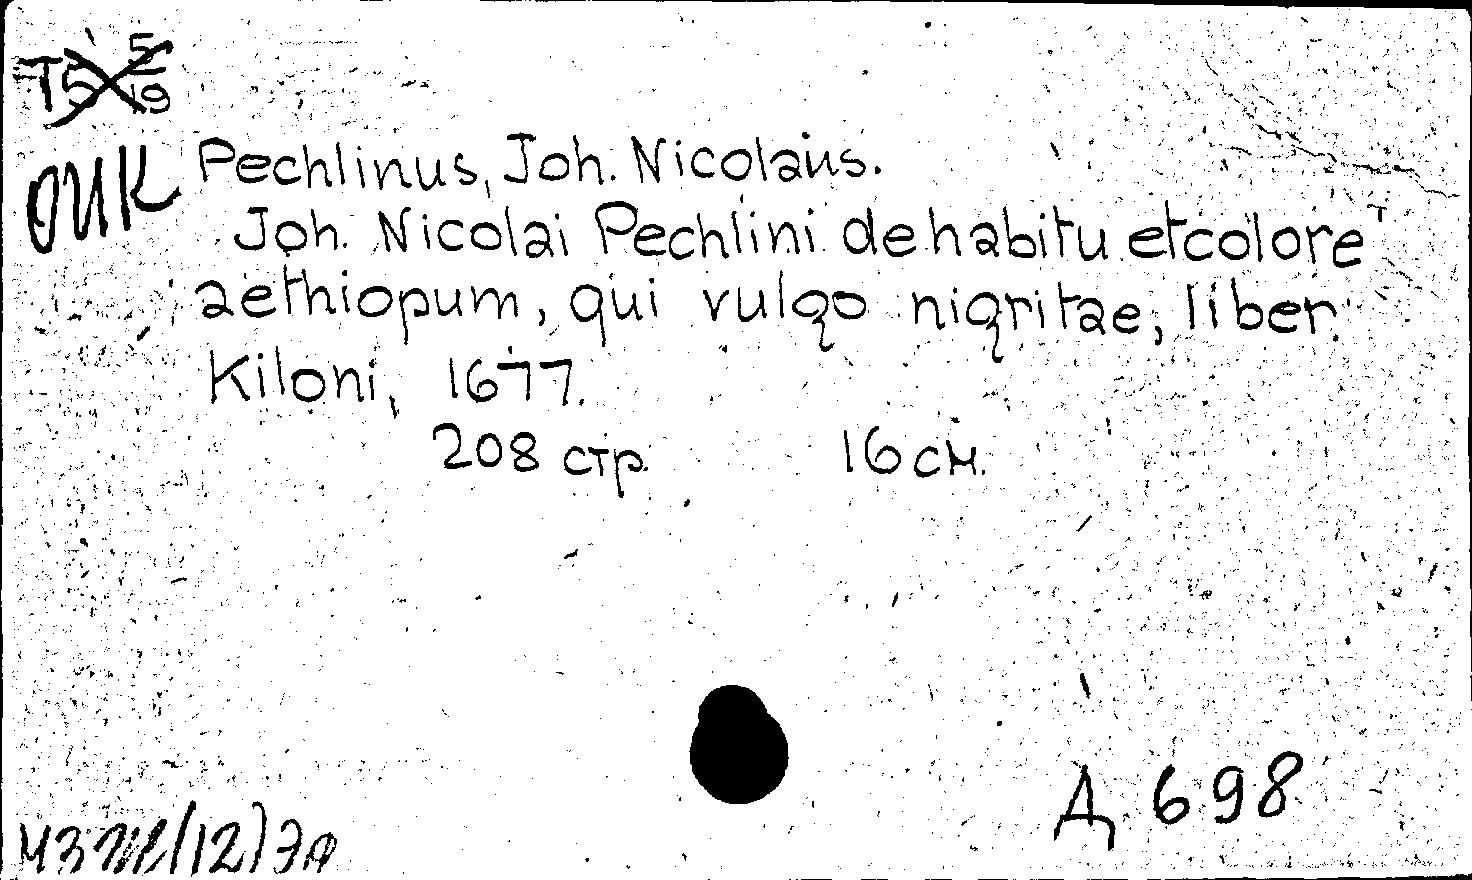 Т5 5/19
ОИК
Pechlinus, Joh. Nicolaus.
Joh. Nicolai Pechlini de habitu et colore
aethiopum, qui vulgo nigritae, liber.
Kiloni, 1677.
208 стр. 16 см.
Д 698
(12)